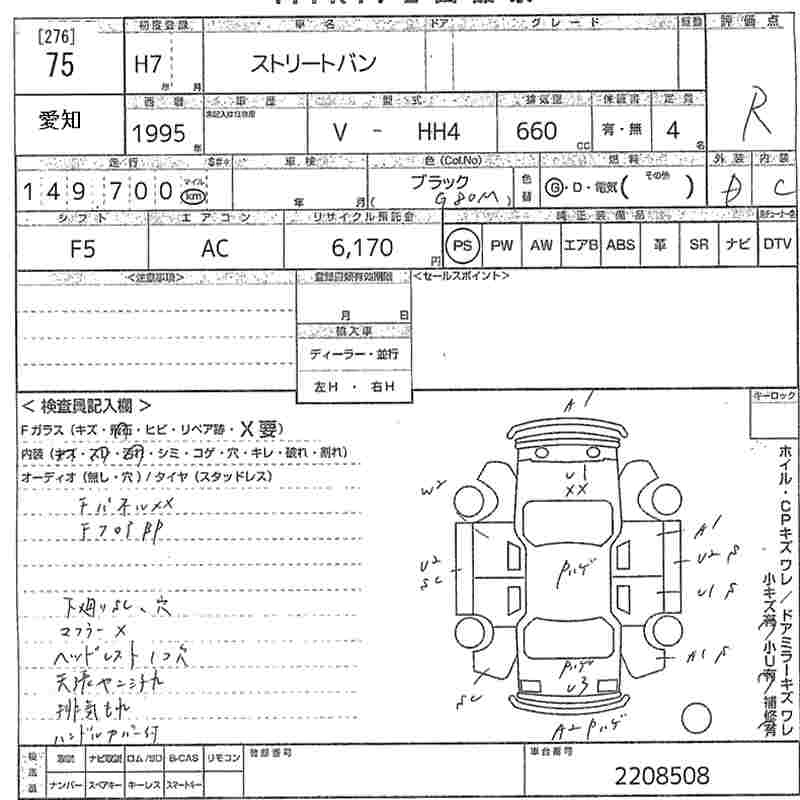 [276]
75
初度登録 車名 ドア グレード 評価点
H7 年 月
ストリートバン
R
愛知
西暦 車歴 型式 排気量 保証書 定員
1995 年
未記入は自家用
V - HH4
660 cc
有・無
4 名
走行 車検 色 (Col.No) 燃料 外装 内装
149,700 マイル km
年 月
ブラック
( G80M )
色替
Ⓖ・D・電気( その他 )
D
C
シフト エアコン リサイクル預託金 純正装備品
F5
AC
6,170 円
PS PW AW エアB ABS 革 SR ナビ DTV
<注意事項>
登録書類有効期限
<セールスポイント>
月 日
輸入車
ディーラー・並行
左H ・ 右H
キーロック
< 検査員記入欄 >
Fガラス (キズ・飛石・ヒビ・リペア跡・X要)
内装 (キズ・スリ・汚れ・シミ・コゲ・穴・キレ・破れ・割れ)
オーディオ (無し・穴) / タイヤ (スタッドレス)
FパネルXX
下廻りSC、穴
マフラーX
ヘッドレスト1コ欠
排気もれ
A1
U1
XX
W2
A1
U2
SC
U2 P
Pハゲ
U1 P
A1 P
Pハゲ
U3
SC
A2 Pハゲ
ホイル・CPキズ ワレ / ドアミラーキズ ワレ
小キズ有 / 小U有 / 補修有
検査員
取説 ナビ取説 ロム/SD B-CAS リモコン
ナンバー スペアキー キーレス スマートキー
登録番号
車台番号
2208508